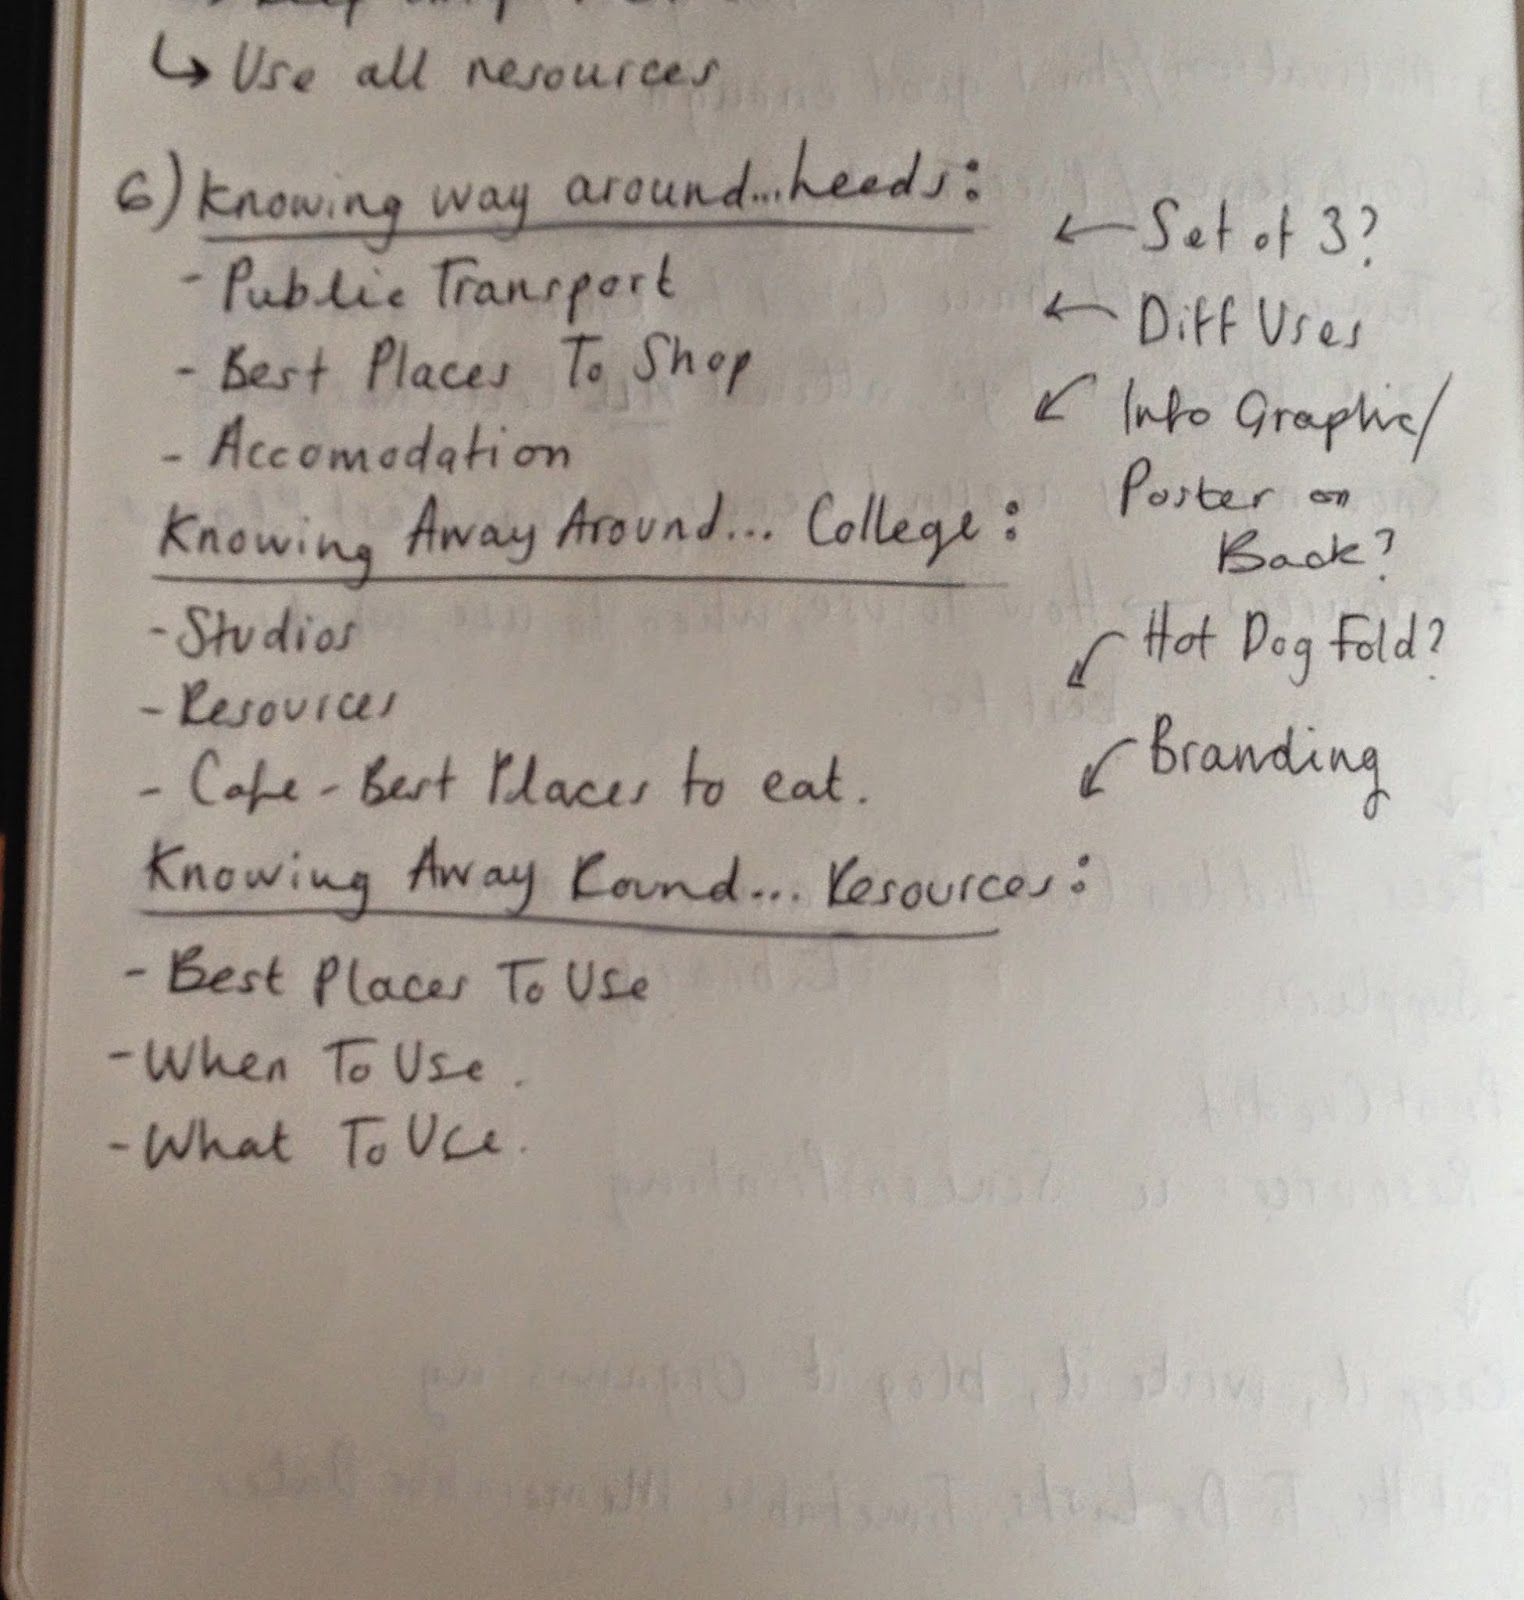 ↳ Use all resources
6) Knowing way around...Leeds:
- Public Transport
- Best Places To Shop
- Accomodation
Knowing Away Around... College:
- Studios
- Resources
- Cafe - Best Places to eat.
Knowing Away Round... Resources:
- Best Places To Use
- When To Use.
- What To Use.
← Set of 3?
← Diff Uses
↙ Info Graphic/
Poster on
Back?
↙ Hot Dog Fold?
↙ Branding